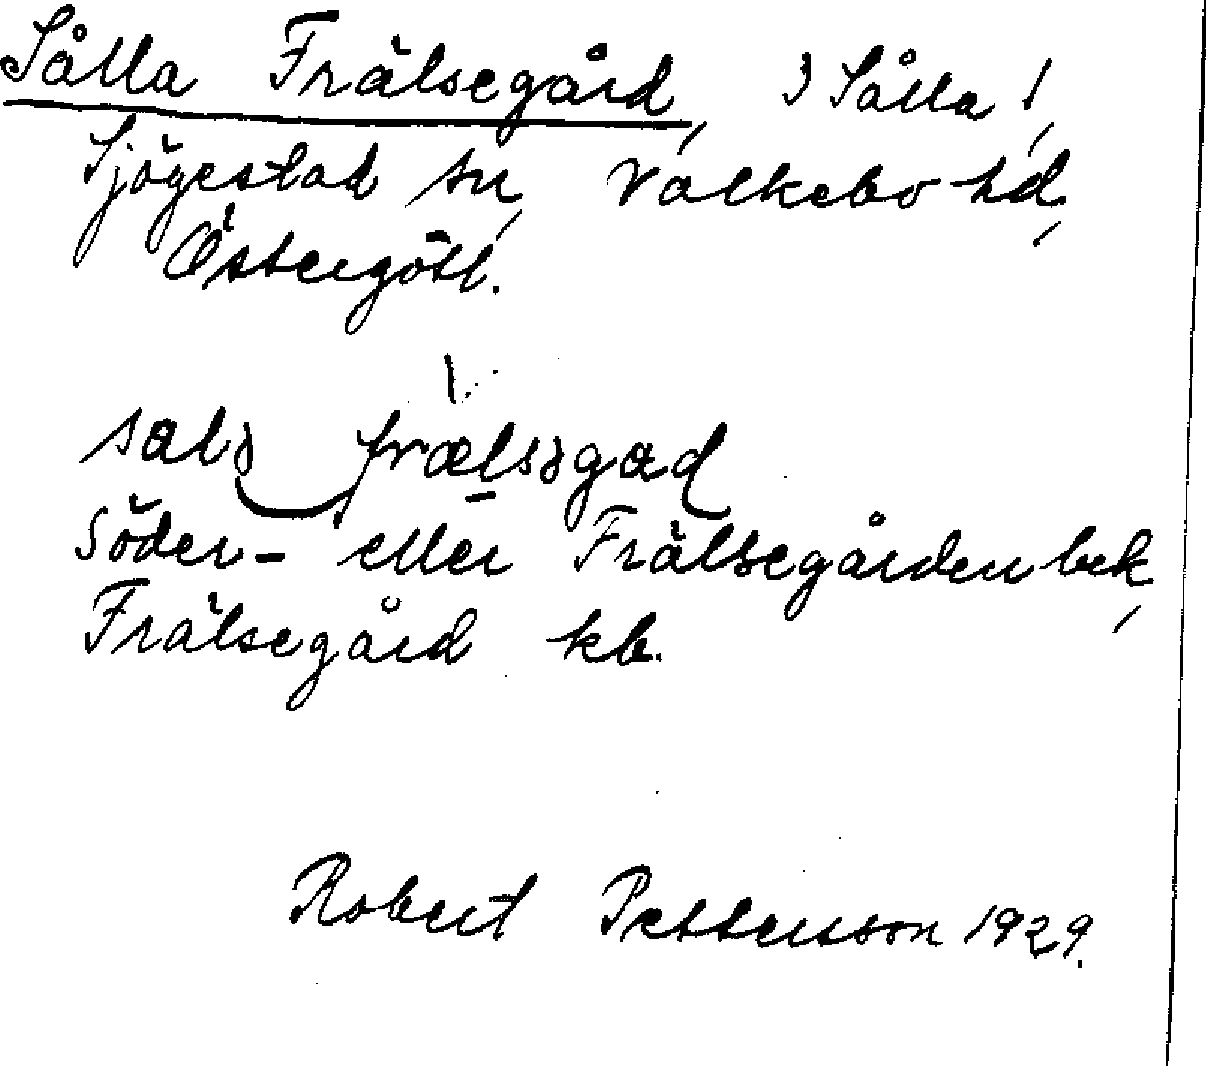 Sålla Frälsegård, ) Sålla /,
Sjögestad sn, Valkebo hd,
Östergötl.
salə frælsəgad
Söder- eller Frälsegården bek,
Frälsegård kb.
Robert Pettersson 1929.